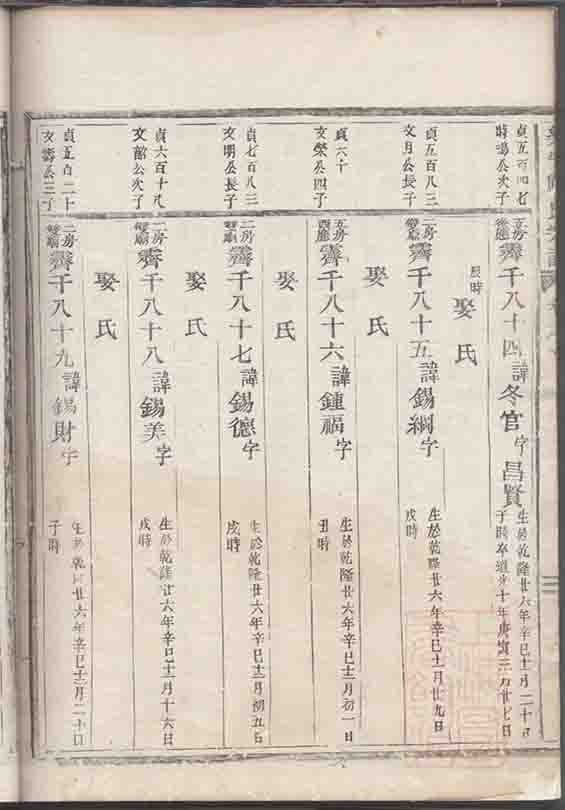 貞五百四七
時鳴公次子
五房
霽千八十四諱冬官字昌賢
生於乾隆廿六年辛巳十二月二十日
子時卒道光十年庚寅三月廿七日
辰時
娶氏
貞五百八三
文月公長子
二房
霽千八十五諱錫綱字
生於乾隆廿六年辛巳十二月廿九日
戌時
娶氏
貞六十
文榮公四子
五房
霽千八十六諱鍾福字
生於乾隆廿六年辛巳十二月初一日
丑時
娶氏
貞七百八三
文明公長子
二房
霽千八十七諱錫德字
生於乾隆廿六年辛巳十二月初五日
戌時
娶氏
貞六百十八
文韶公次子
二房
霽千八十八諱錫美字
生於乾隆廿六年辛巳十二月十六日
戌時
娶氏
貞五百二十
文壽公三子
二房
霽千八十九諱錫財字
生於乾隆廿六年辛巳十二月二十日
子時